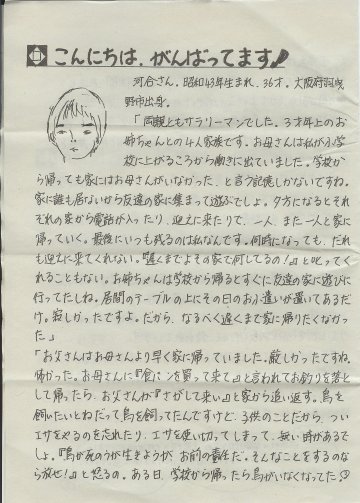 こんにちは、がんばってます!
河合さん。昭和43年生まれ、36才。大阪府羽曳
野市出身。
「両親ともサラリーマンでした。3才年上のお
姉ちゃんとの4人家族です。お母さんは私が小学
校に上がるころから働きに出ていました。学校か
ら帰っても家にはお母さんがいなかった、と言う記憶しかないですね。
家に誰も居ないから友達の家に集まって遊ぶでしょ。夕方になるとそれ
ぞれの家から電話が入ったり、迎えに来たりで、一人、また一人と家に
帰っていく。最後にいつも残るのは私なんです。何時になっても、だれ
も迎えに来てくれない。『遅くまでよその家で何してるの!』と叱ってく
れることもない。お姉ちゃんは学校から帰るとすぐに友達の家に遊びに
行ってたしね。居間のテーブルの上にその日のお小遣いが置いてあるだ
け。寂しかったですよ。だから、なるべく遅くまで家に帰りたくなかっ
た。」
「お父さんはお母さんより早く家に帰っていました。厳しかったですね。
怖かった。お母さんに『食パンを買って来て』と言われてお釣りを落と
して帰ったら、お父さんが『さがして来い』と家から追い返す。鳥を
飼いたいとねだって鳥を飼ってたんですけど、子供のことだから、つい
エサをやるのを忘れたり、エサを使い切ってしまって、無い時があるで
しょ。『鳥が死のうが生きようが、お前の責任だ。そんなことをするのな
ら放せ!』と怒るの。ある日、学校から帰ったら鳥がいなくなってた